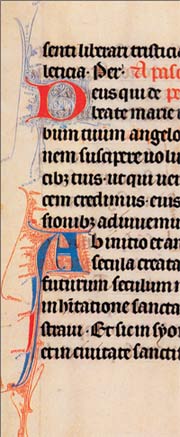 senti liberari tristicia
leticia. Per. A pasc
Deus qui de
beate marie u
bum tuum angelo
nem suscipere uolu
cibz tuis. ut qui uer
cem credimus. eius
sionibz adiuuemur
Ab initio et an
secula creata
futurum seculum n
in hitatione sancta
straui. Et sic in syo
et in ciuitate sanctif